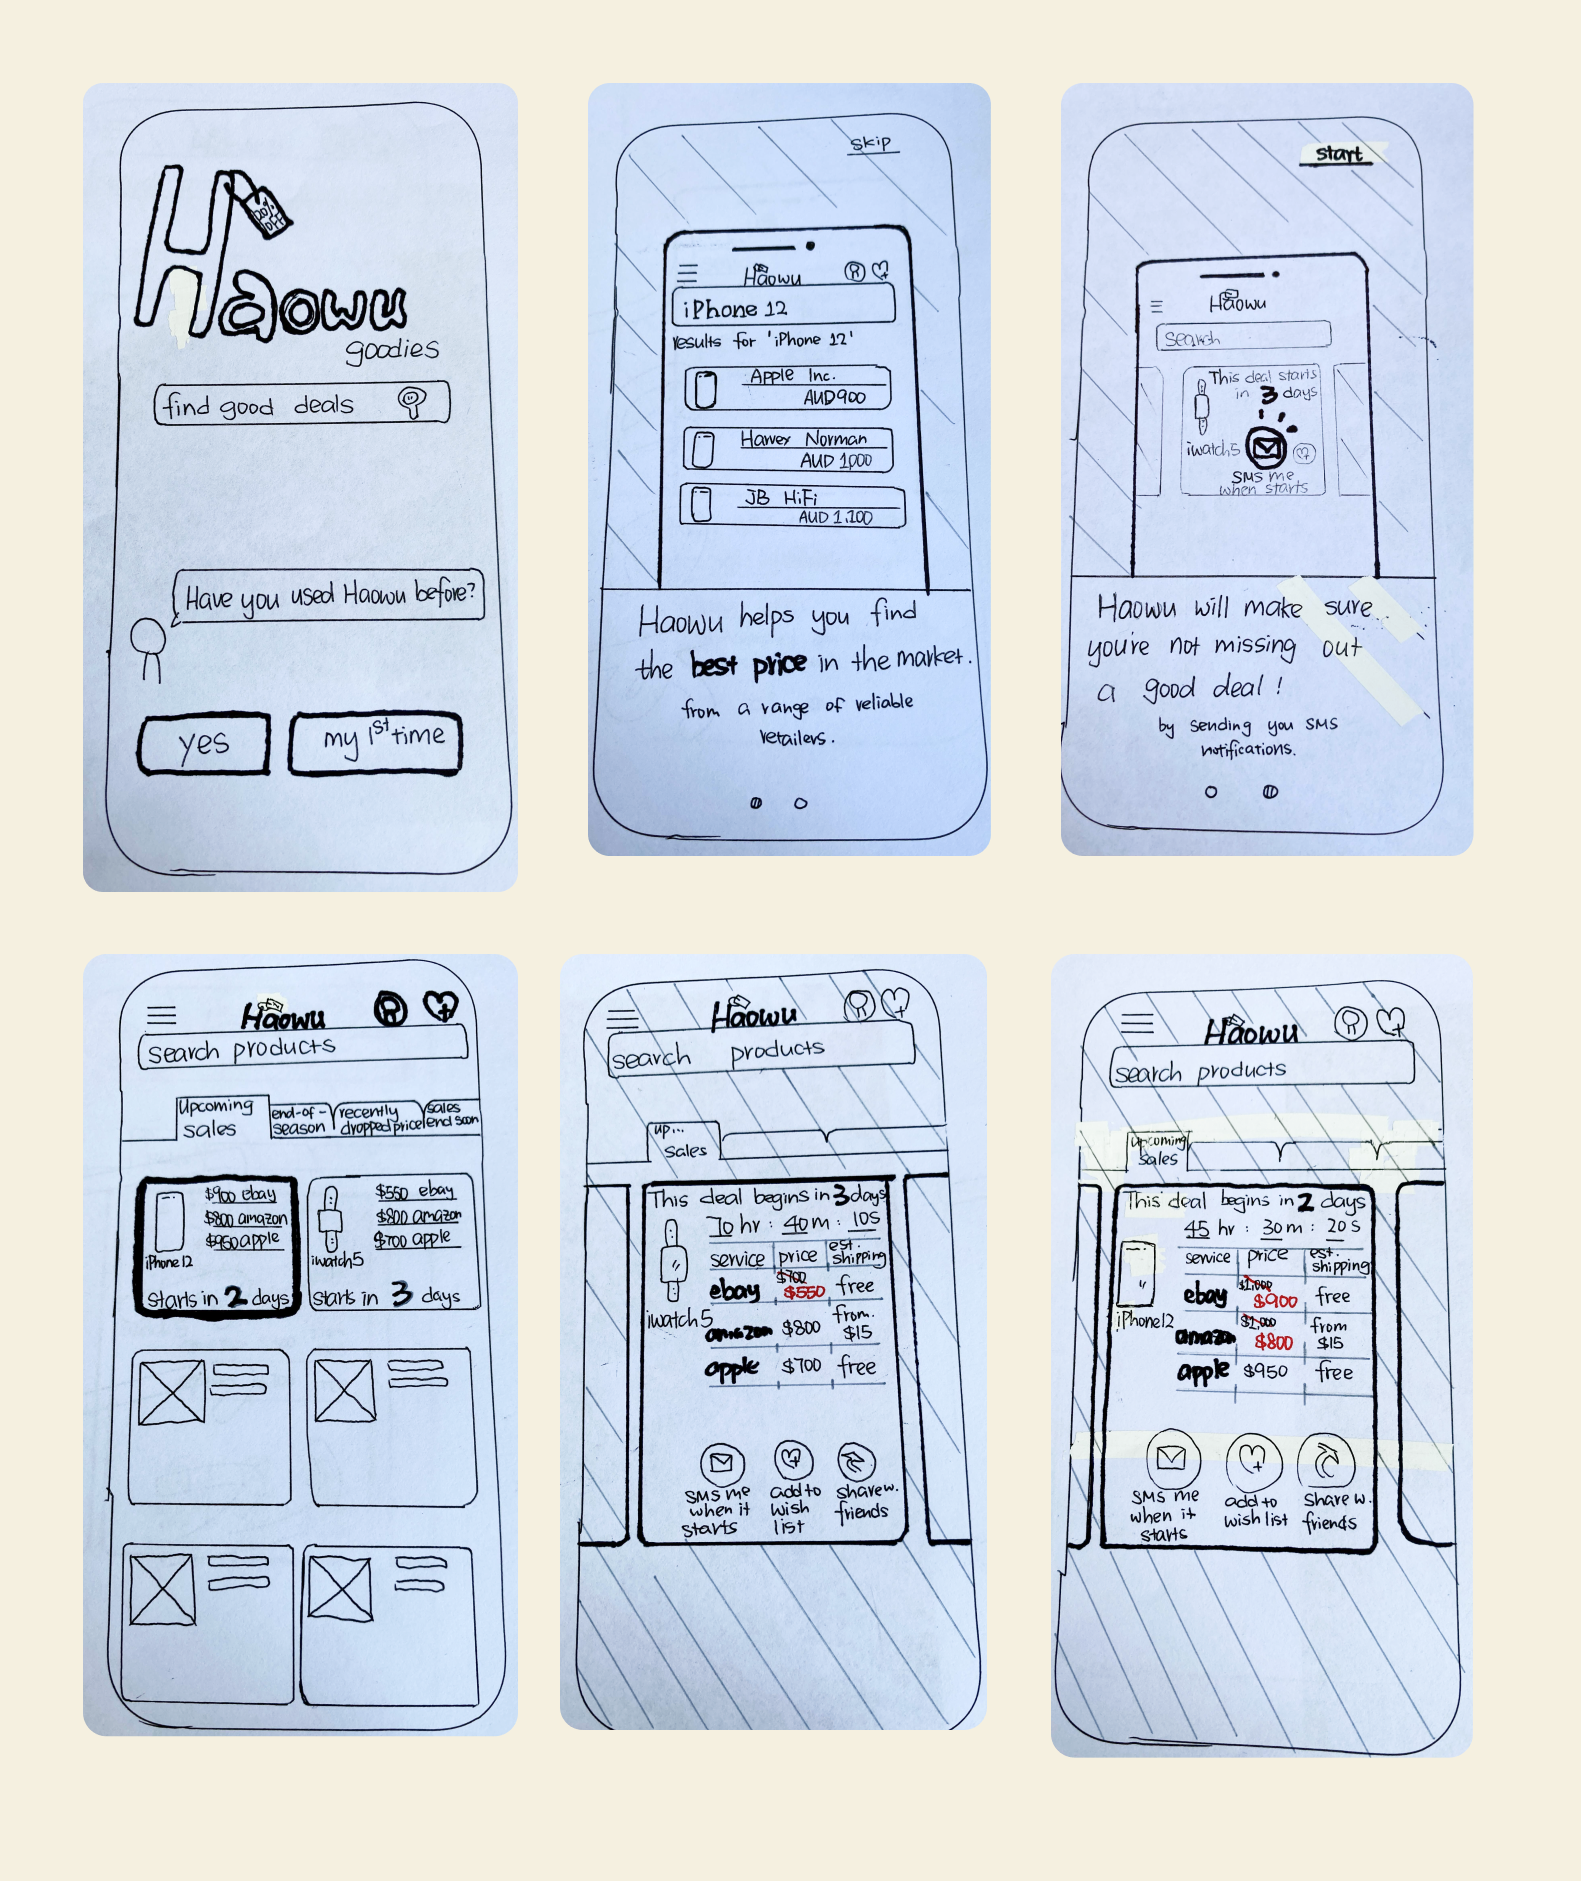 Haowu
20% OFF
goodies
find good deals
Have you used Haowu before?
yes
my 1st time
skip
Haowu
iPhone 12
results for 'iPhone 12'
Apple Inc.
AUD900
Norman
AUD 1,000
JB HiFi
AUD 1,100
Haowu helps you find
the best price in the market.
from a range of reliable
retailers.
start
Haowu
search
This deal starts
in 3 days
iwatch5
SMS me
when starts
Haowu will make sure
you're not missing out
a good deal!
by sending you SMS
notifications.
Haowu
search products
Upcoming
sales
end-of-
season
recently
dropped price
sales
end soon
$900 ebay
$800 amazon
$950 apple
iPhone12
starts in 2 days
$550 ebay
$800 amazon
$700 apple
iwatch5
starts in 3 days
Haowu
search products
up...
sales
This deal begins in 3 days
70 hr : 40m : 10s
service price est. shipping
ebay $700 $550 free
amazon $800 from $15
apple $700 free
iwatch5
SMS me
when it
starts
add to
wish
list
share w.
friends
Haowu
search products
Upcoming
sales
This deal begins in 2 days
45 hr : 30m : 20s
service price est. shipping
ebay $1,000 $900 free
amazon $1,000 $800 from $15
apple $950 free
iPhone12
SMS me
when it
starts
add to
wish list
share w.
friends